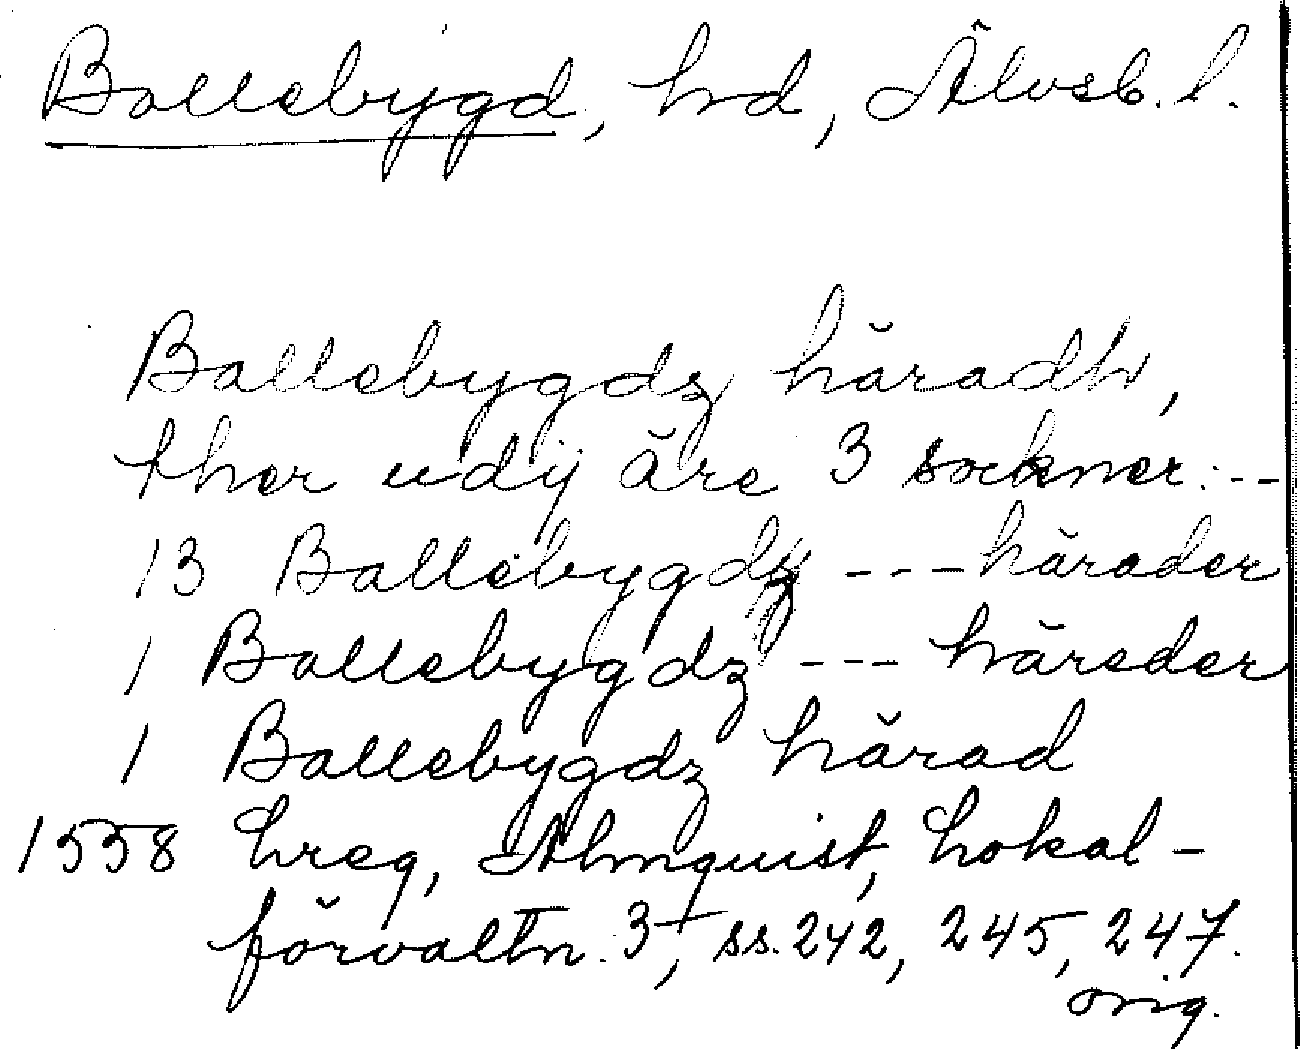 Bollebygd, hd, Älvsb. l.
Ballebygdz häradh,
ther udij äre 3 sockner: --
13 Ballebygdz --- härader
1 Bollebygdz --- häreder
1 Ballebygdz härad
1558 Lreg, Almquist, Lokal-
förvaltn. 3, ss. 242, 245, 247.
orig.